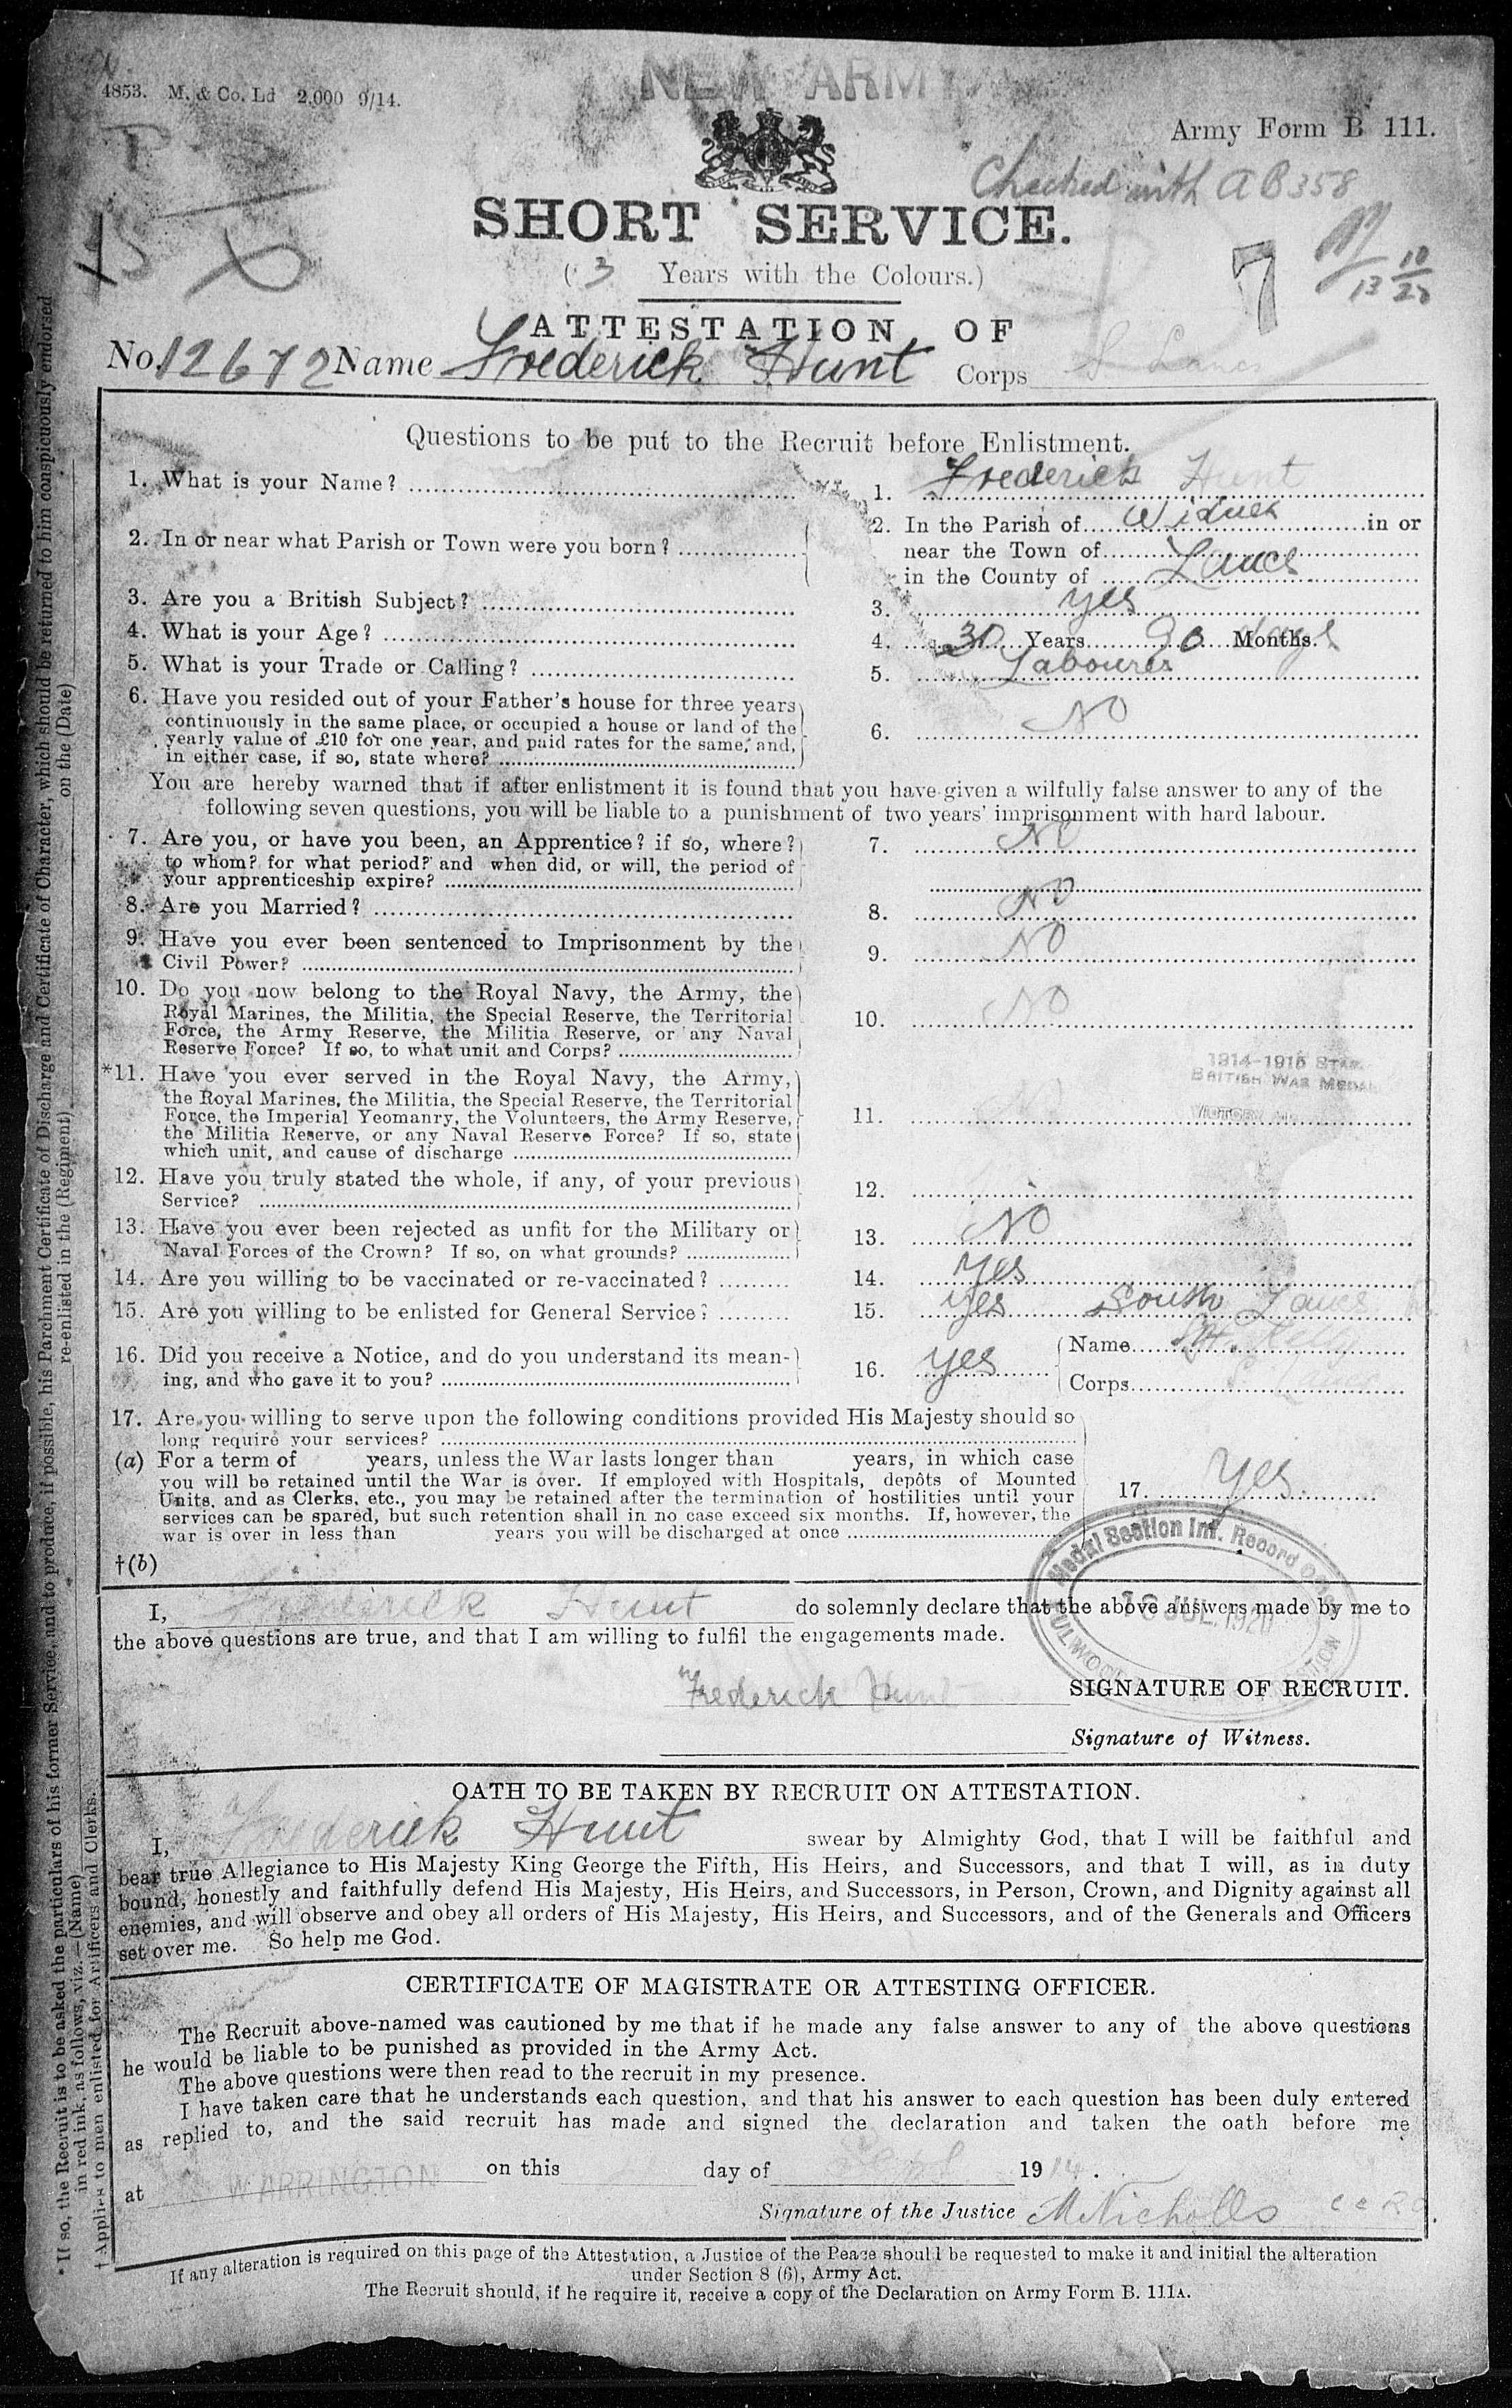 NEW ARMY
4853. M. & Co. Ld 2,000 9/14.
Army Form B 111.
Checked with AB358
SHORT SERVICE.
(3 Years with the Colours.)
7
13 10/20
ATTESTATION OF
No. 12672 Name Frederick Hunt Corps S. Lancs
Questions to be put to the Recruit before Enlistment.
1. What is your Name? 1. Frederick Hunt
2. In or near what Parish or Town were you born? 2. In the Parish of Widnes in or
near the Town of
in the County of Lancs
3. Are you a British Subject? 3. Yes
4. What is your Age? 4. 30 Years 90 Months. days
5. What is your Trade or Calling? 5. Labourer
6. Have you resided out of your Father's house for three years
continuously in the same place, or occupied a house or land of the
yearly value of £10 for one year, and paid rates for the same, and,
in either case, if so, state where? 6. No
You are hereby warned that if after enlistment it is found that you have given a wilfully false answer to any of the
following seven questions, you will be liable to a punishment of two years' imprisonment with hard labour.
7. Are you, or have you been, an Apprentice? if so, where? 7. No
to whom? for what period? and when did, or will, the period of
your apprenticeship expire?
8. Are you Married? 8. No
9. Have you ever been sentenced to Imprisonment by the
Civil Power? 9. No
10. Do you now belong to the Royal Navy, the Army, the
Royal Marines, the Militia, the Special Reserve, the Territorial
Force, the Army Reserve, the Militia Reserve, or any Naval
Reserve Force? If so, to what unit and Corps? 10. No
1914-1915 STAR.
BRITISH WAR MEDAL
VICTORY
*11. Have you ever served in the Royal Navy, the Army,
the Royal Marines, the Militia, the Special Reserve, the Territorial
Force, the Imperial Yeomanry, the Volunteers, the Army Reserve,
the Militia Reserve, or any Naval Reserve Force? If so, state
which unit, and cause of discharge 11. No
12. Have you truly stated the whole, if any, of your previous
Service? 12.
13. Have you ever been rejected as unfit for the Military or
Naval Forces of the Crown? If so, on what grounds? 13. No
14. Are you willing to be vaccinated or re-vaccinated? 14. Yes
15. Are you willing to be enlisted for General Service? 15. Yes South Lancs
16. Did you receive a Notice, and do you understand its mean-
ing, and who gave it to you? 16. Yes Name
Corps S. Lancs
17. Are you willing to serve upon the following conditions provided His Majesty should so
long require your services?
(a) For a term of years, unless the War lasts longer than years, in which case
you will be retained until the War is over. If employed with Hospitals, depôts of Mounted
Units, and as Clerks, etc., you may be retained after the termination of hostilities until your
services can be spared, but such retention shall in no case exceed six months. If, however, the
war is over in less than years you will be discharged at once 17. Yes.
†(b)
Medal Section Inf. Record
JUL 1920
FULWOOD
I, Frederick Hunt do solemnly declare that the above answers made by me to
the above questions are true, and that I am willing to fulfil the engagements made.
Frederick Hunt SIGNATURE OF RECRUIT.
Signature of Witness.
OATH TO BE TAKEN BY RECRUIT ON ATTESTATION.
I, Frederick Hunt swear by Almighty God, that I will be faithful and
bear true Allegiance to His Majesty King George the Fifth, His Heirs, and Successors, and that I will, as in duty
bound, honestly and faithfully defend His Majesty, His Heirs, and Successors, in Person, Crown, and Dignity against all
enemies, and will observe and obey all orders of His Majesty, His Heirs, and Successors, and of the Generals and Officers
set over me. So help me God.
CERTIFICATE OF MAGISTRATE OR ATTESTING OFFICER.
The Recruit above-named was cautioned by me that if he made any false answer to any of the above questions
he would be liable to be punished as provided in the Army Act.
The above questions were then read to the recruit in my presence.
I have taken care that he understands each question, and that his answer to each question has been duly entered
as replied to, and the said recruit has made and signed the declaration and taken the oath before me
at WARRINGTON on this day of Sept 1914.
Signature of the Justice M Nicholls
If any alteration is required on this page of the Attestation, a Justice of the Peace should be requested to make it and initial the alteration
under Section 8 (6), Army Act.
The Recruit should, if he require it, receive a copy of the Declaration on Army Form B. 111A.
* If so, the Recruit is to be asked the particulars of his former Service, and to produce, if possible, his Parchment Certificate of Discharge and Certificate of Character, which should be returned to him conspicuously endorsed
in red ink, as follows, viz.—(Name) re-enlisted in the (Regiment) on the (Date)
† Applies to men enlisted for Artificers and Clerks.